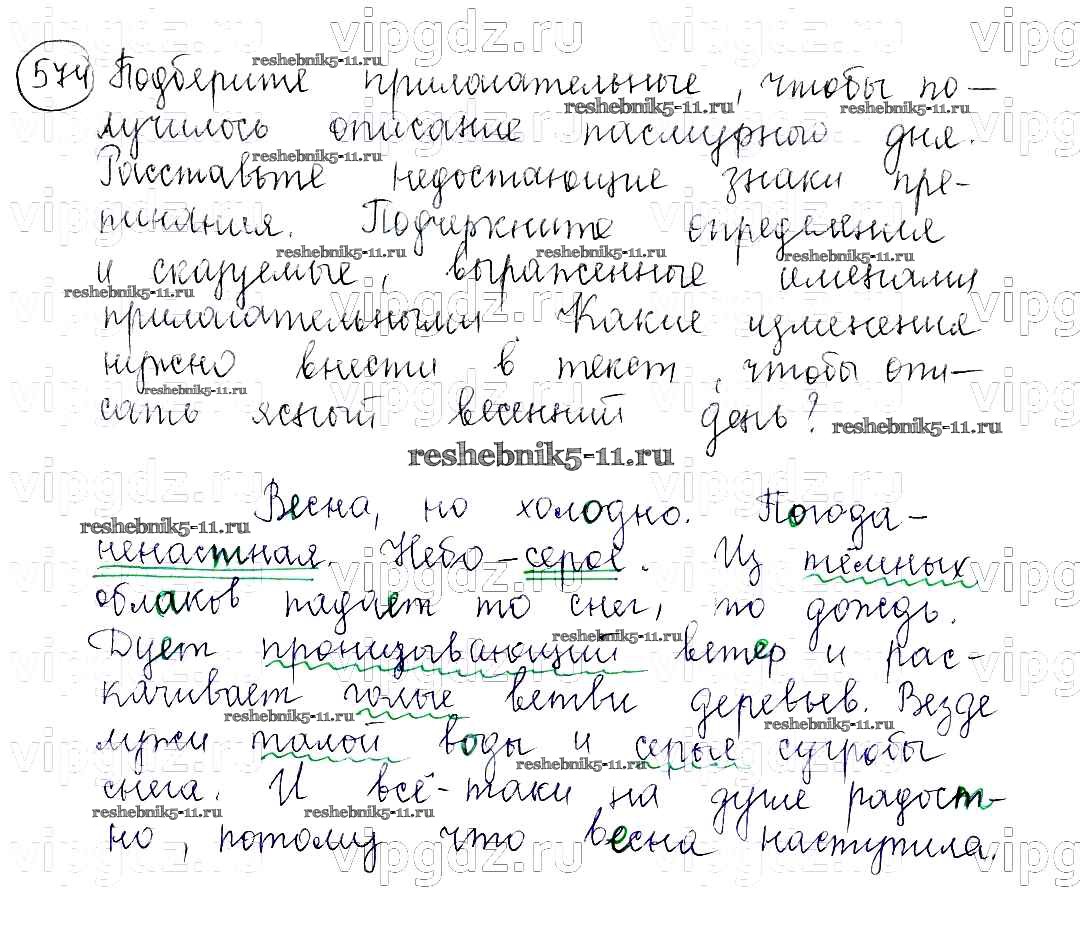 574 Подберите прилагательные, чтобы по-
лучилось описание пасмурного дня.
Расставьте недостающие знаки пре-
пинания. Подчеркните определения
и сказуемые, выраженные именами
прилагательными. Какие изменения
нужно внести в текст, чтобы опи-
сать ясный весенний день?
reshebnik5-11.ru
Весна, но холодно. Погода -
ненастная. Небо - серое. Из тёмных
облаков падает то снег, то дождь.
Дует пронизывающий ветер и рас-
качивает голые ветви деревьев. Везде
лужи талой воды и серые сугробы
снега. И всё-таки на душе радост-
но, потому что весна наступила.